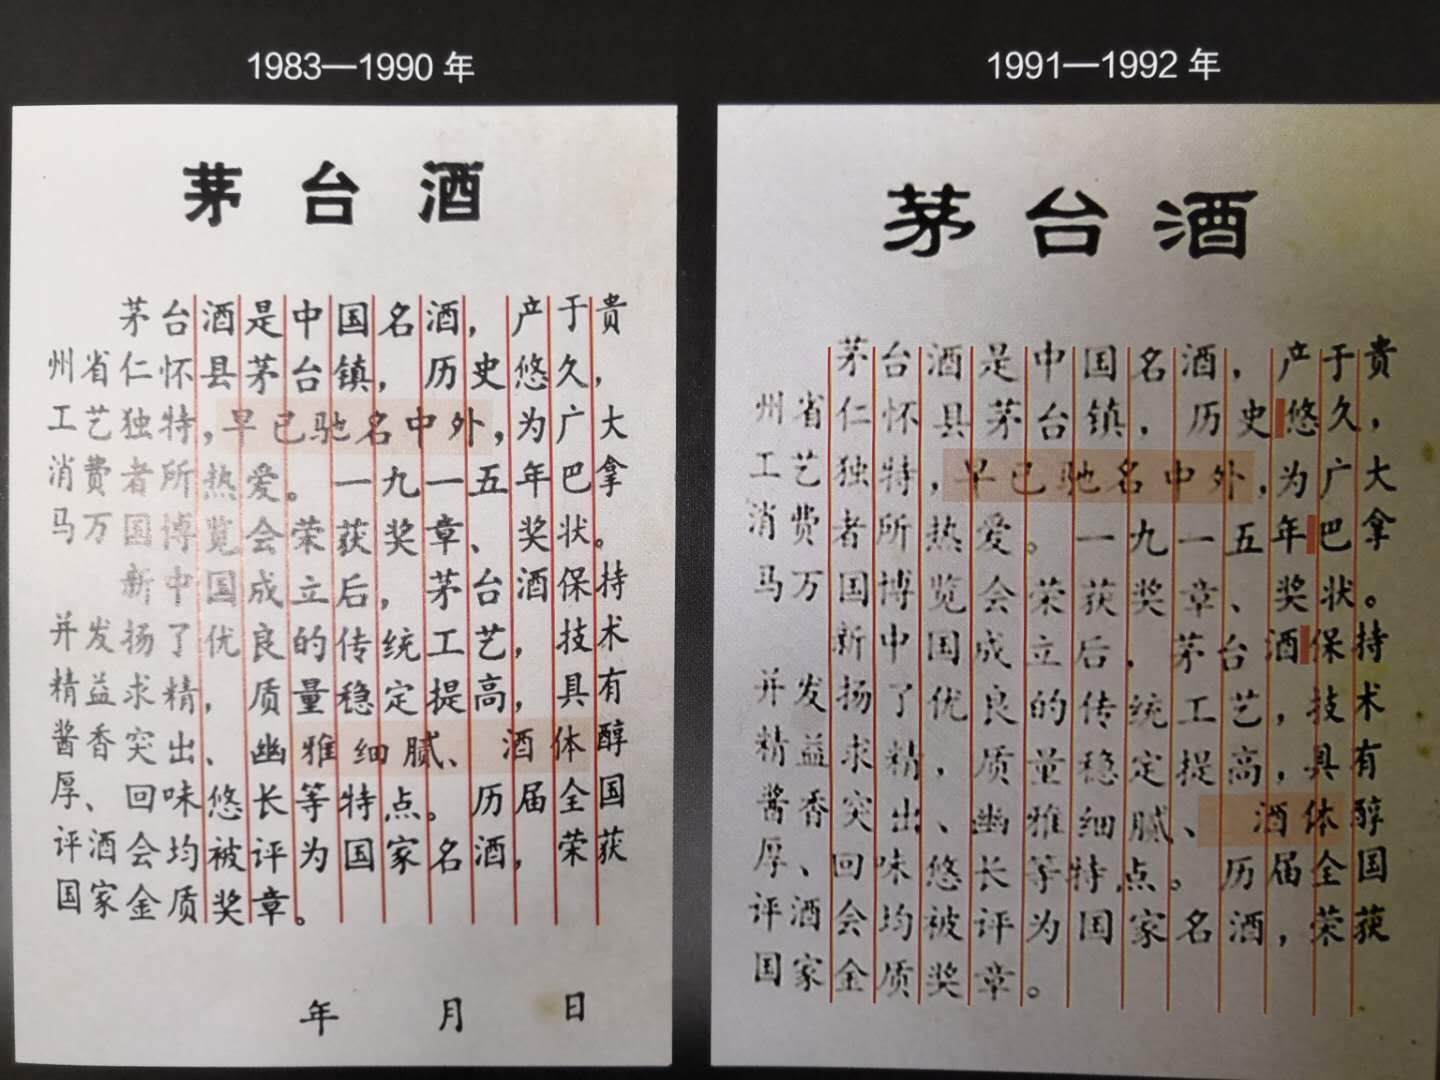 1983—1990 年
茅台酒
茅台酒是中国名酒，产于贵
州省仁怀县茅台镇，历史悠久，
工艺独特，早已驰名中外，为广大
消费者所热爱。一九一五年巴拿
马万国博览会荣获奖章、奖状。
新中国成立后，茅台酒保持
并发扬了优良的传统工艺，技术
精益求精，质量稳定提高，具有
酱香突出、幽雅细腻、酒体醇
厚、回味悠长等特点。历届全国
评酒会均被评为国家名酒，荣获
国家金质奖章。
年 月 日
1991—1992 年
茅台酒
茅台酒是中国名酒，产于贵
州省仁怀县茅台镇，历史悠久，
工艺独特，早已驰名中外，为广大
消费者所热爱。一九一五年巴拿
马万国博览会荣获奖章、奖状。
新中国成立后，茅台酒保持
并发扬了优良的传统工艺，技术
精益求精，质量稳定提高，具有
酱香突出、幽雅细腻、酒体醇
厚、回味悠长等特点。历届全国
评酒会均被评为国家名酒，荣获
国家金质奖章。